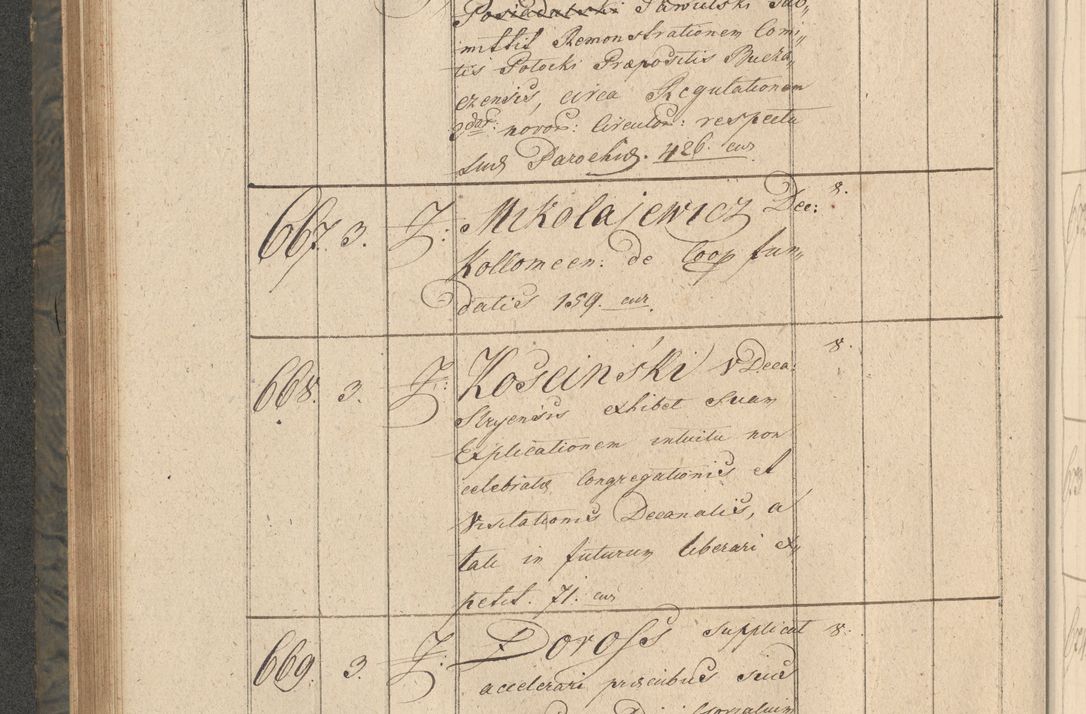 Posiadalski Pawulski Sub„
mittit Remonstrationem Comi„
tis Potocki Præpositis Bucza„
czensis, circa Regulationem
2dar: novor: Circulor: respectu
suæ Parochiæ. 426. cur.
667. 3. J: Mikolajewicz Dec: 8.
Kollomeen: de Coop fun„
datis 159. cur.
668. 3. J: Kosciński V Deca: 8.
Stryensis exhibet Suam
Explicationem intuitu non
celebratæ Congregationis et
Visitationis Decanalis, a
tali in futurum liberari ex„
petit. 71. cur
669. 3. J: Doross supplicat 8.
accelerari precibus suis